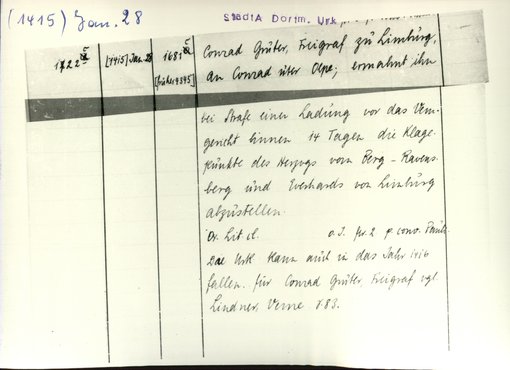 (1415) Jan. 28
StadtA Dortm. Urk
1722 a
[1415] Jan. 28
1681 a
[früher 4395]
Conrad Grüter, Freigraf zu Limburg,
an Conrad über Olpe; ermahnt ihn
bei Strafe einer Ladung vor das Vem-
gericht binnen 14 Tagen die Klage-
punkte des Herzogs vom Berg-Ravens-
berg und Everhards von Limburg
abzustellen.
Or. Lit cl. o. J. fer. 2 p. conv. Pauli.
Die Urk kann auch in das Jahr 1416
fallen. für Conrad Grüter, Freigraf vgl.
Lindner, Veme 83.